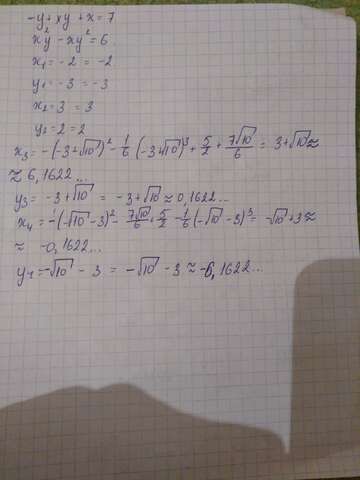 -y + xy + x = 7
x²y - xy² = 6
x₁ = -2 = -2
y₁ = -3 = -3
x₂ = 3 = 3
y₂ = 2 = 2
x₃ = -(-3+√10)² - 1/6 (-3+√10)³ + 5/2 + 7√10/6 = 3+√10 ≈
≈ 6,1622...
y₃ = -3+√10 = -3+√10 ≈ 0,1622...
x₄ = -(-√10-3)² - 7√10/6 + 5/2 - 1/6(-√10-3)³ = -√10+3 ≈
≈ -0,1622...
y₄ = -√10 - 3 = -√10 - 3 ≈ -6,1622...